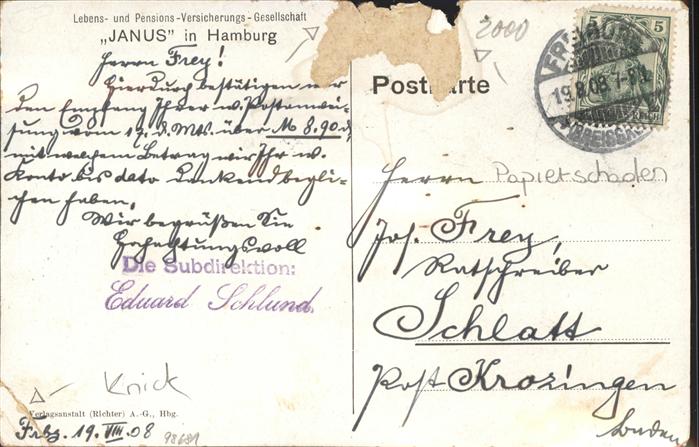 Lebens- und Pensions-Versicherungs-Gesellschaft
„JANUS" in Hamburg
Herrn Frey!
Hierdurch bestätigen wir
den Empfang Ihrer w. Postanwei-
sung vom 17. d. Mts. über M 8.90 d,
mit welchem Betrag wir Ihr w.
Konto bis dato dankend begli-
chen haben.
Wir begrüßen Sie
Hochachtungsvoll
Die Subdirektion:
Eduard Schlund.
Knick
Verlagsanstalt (Richter) A.-G., Hbg.
Frbg. 19. VIII 08
98681
2000
Postkarte
5 5
FREIBURG
19.8.08.7-8N
(BREISGAU)
Herrn
Papierschaden
Jos. Frey,
Ratschreiber
Schlatt
Post Krozingen
Baden